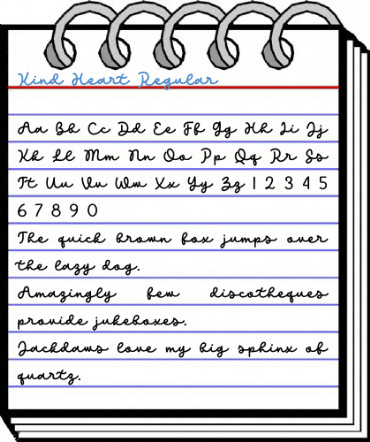 Kind Heart Regular
Aa Bb Cc Dd Ee Ff Gg Hh Ii Jj
Kk Ll Mm Nn Oo Pp Qq Rr Ss
Tt Uu Vv Ww Xx Yy Zz 1 2 3 4 5
6 7 8 9 0
The quick brown fox jumps over
the lazy dog.
Amazingly few discotheques
provide jukeboxes.
Jackdaws love my big sphinx of
quartz.